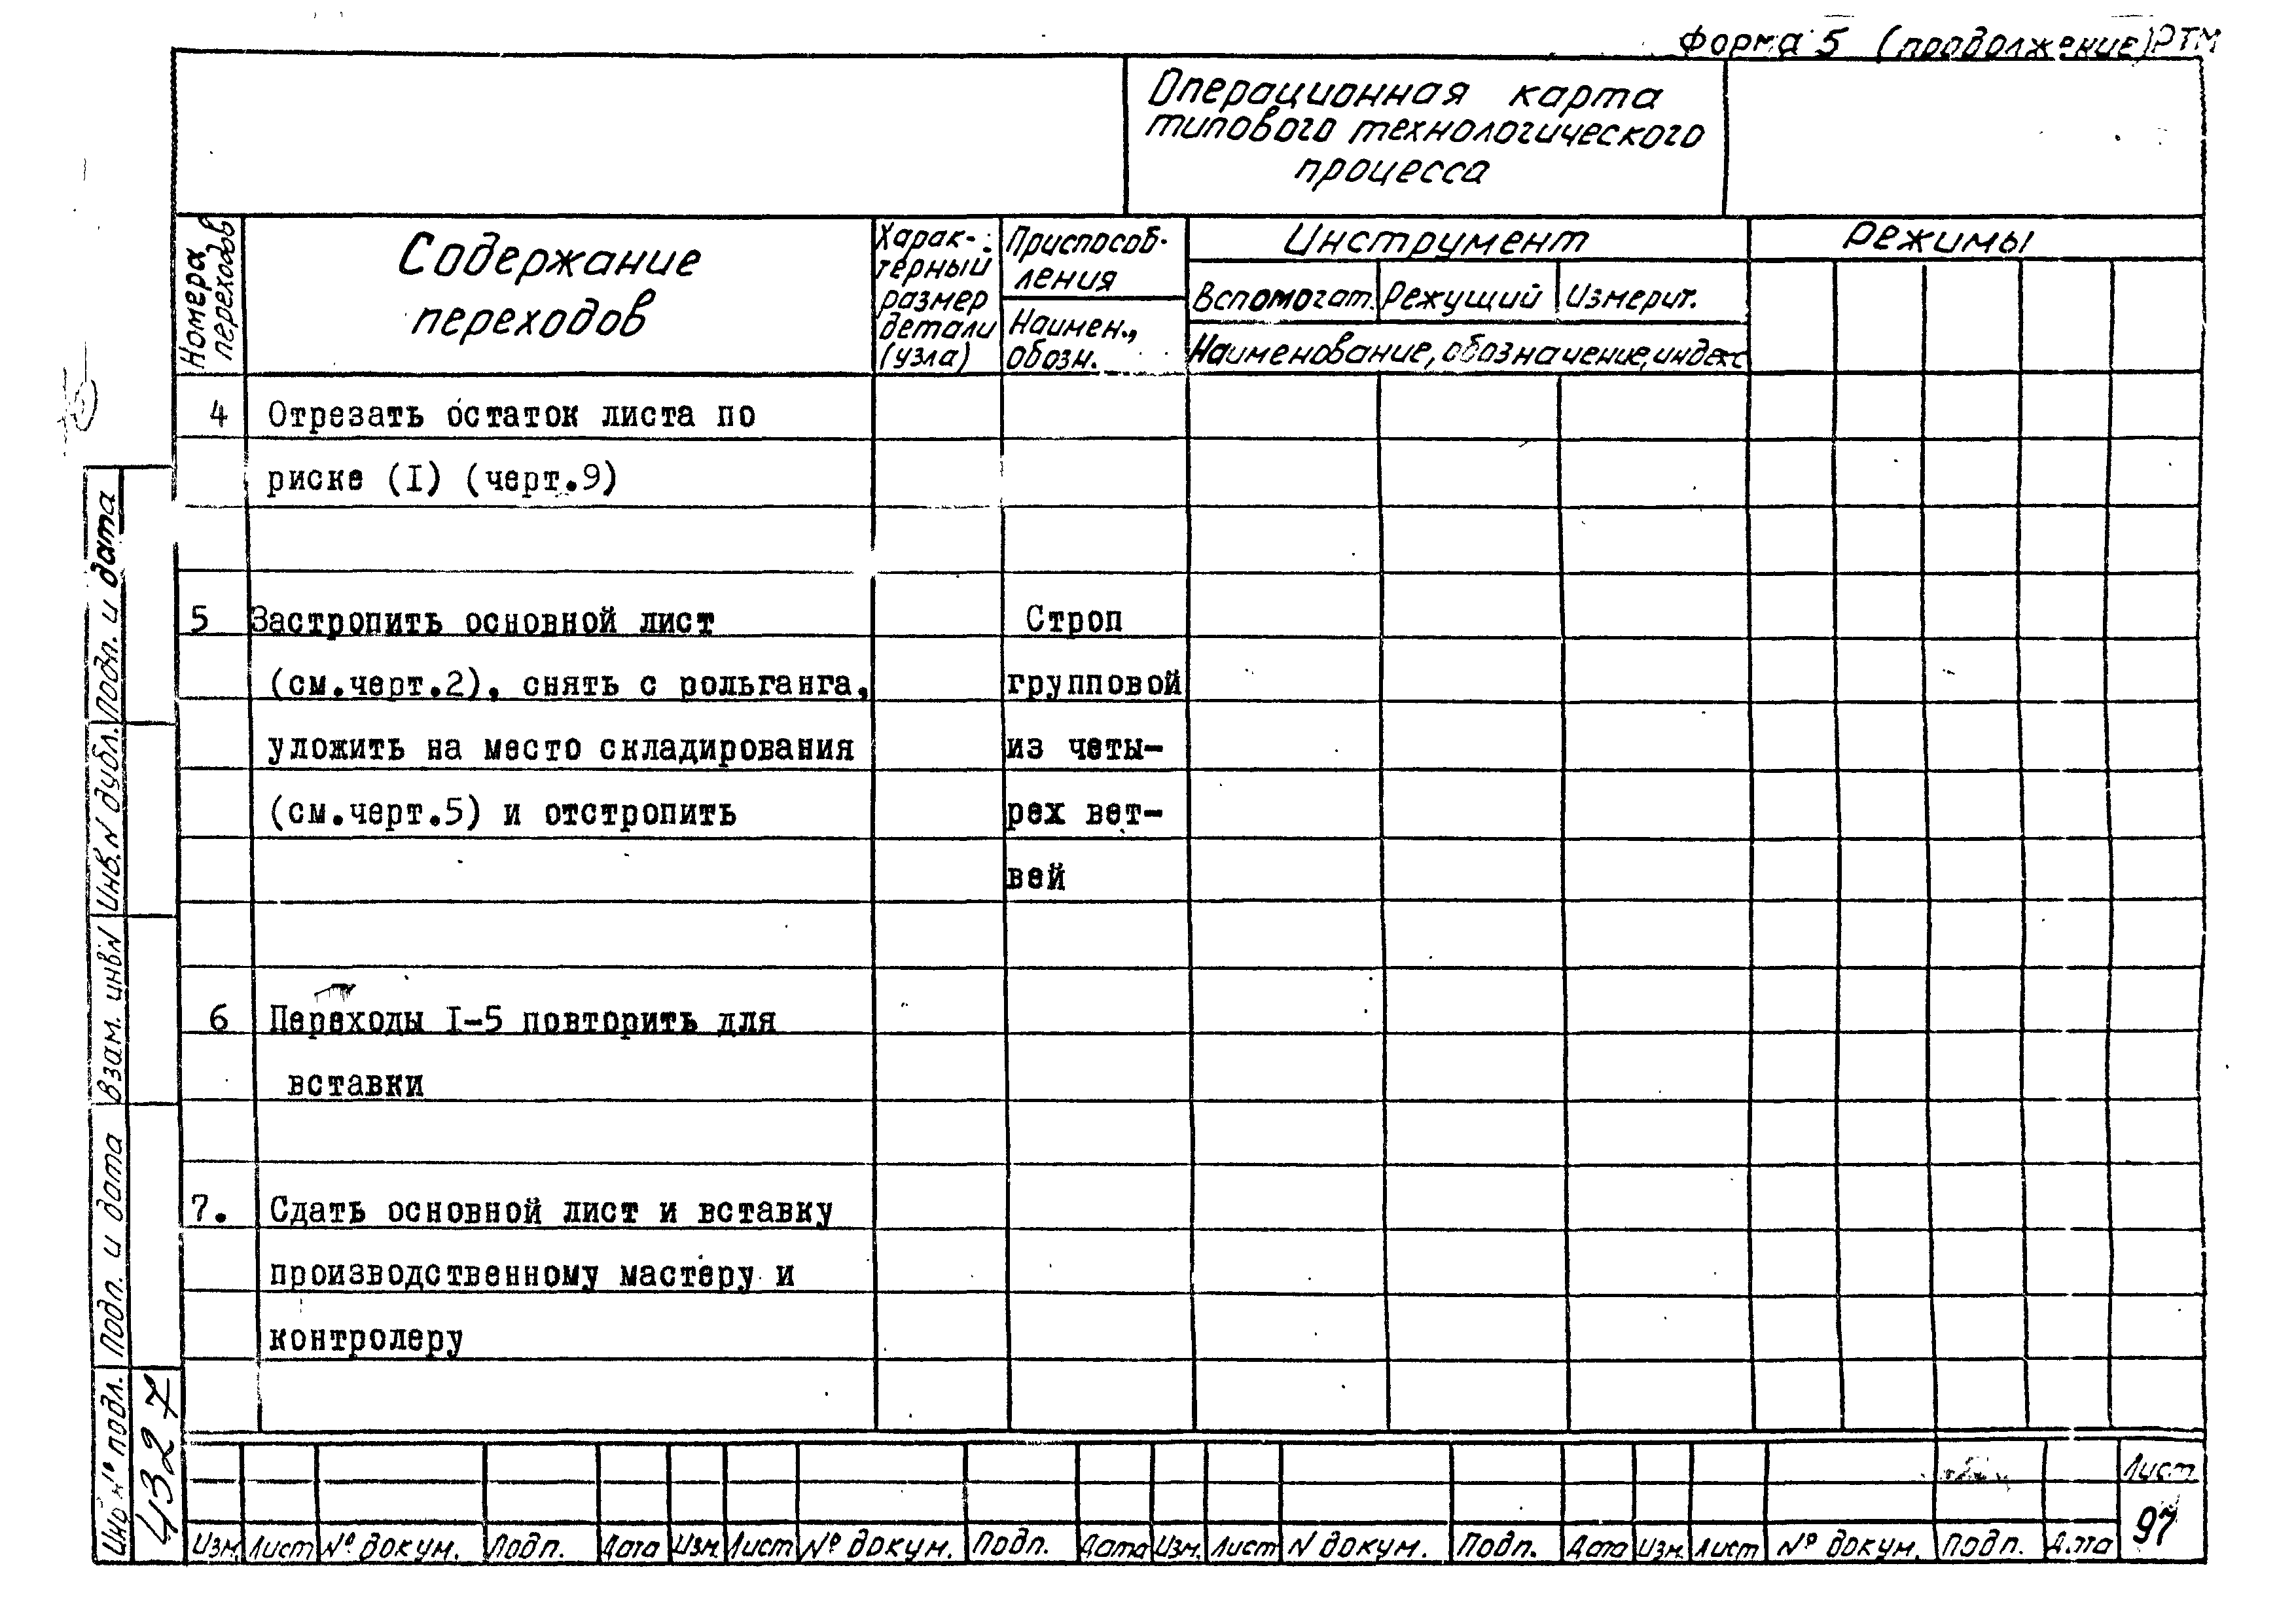 Форма 5 (продолжение) РТМ
Операционная карта
типового технологического
процесса
Номера
переходов
Содержание
переходов
Харак-
терный
размер
детали
(узла)
Приспособ-
ления
Наимен.,
обозн.
Инструмент
Вспомогат. Режущий Измерит.
Наименование, обозначение, индекс
Режимы
4 Отрезать остаток листа по
риске (I) (черт.9)
5 Застропить основной лист Строп
(см.черт.2), снять с рольганга, групповой
уложить на место складирования из четы-
(см.черт.5) и отстропить рех вет-
вей
6 Переходы I-5 повторить для
вставки
7. Сдать основной лист и вставку
производственному мастеру и
контролеру
Подп. и дата
Инв. N дубл.
Взам. инв N
Подп. и дата
Инв N° подл.
4327
Лист
97
Изм. Лист № докум. Подп. Дата Изм. Лист № докум. Подп. Дата Изм. Лист N докум. Подп. Дата Изм. Лист № докум. Подп. Дата